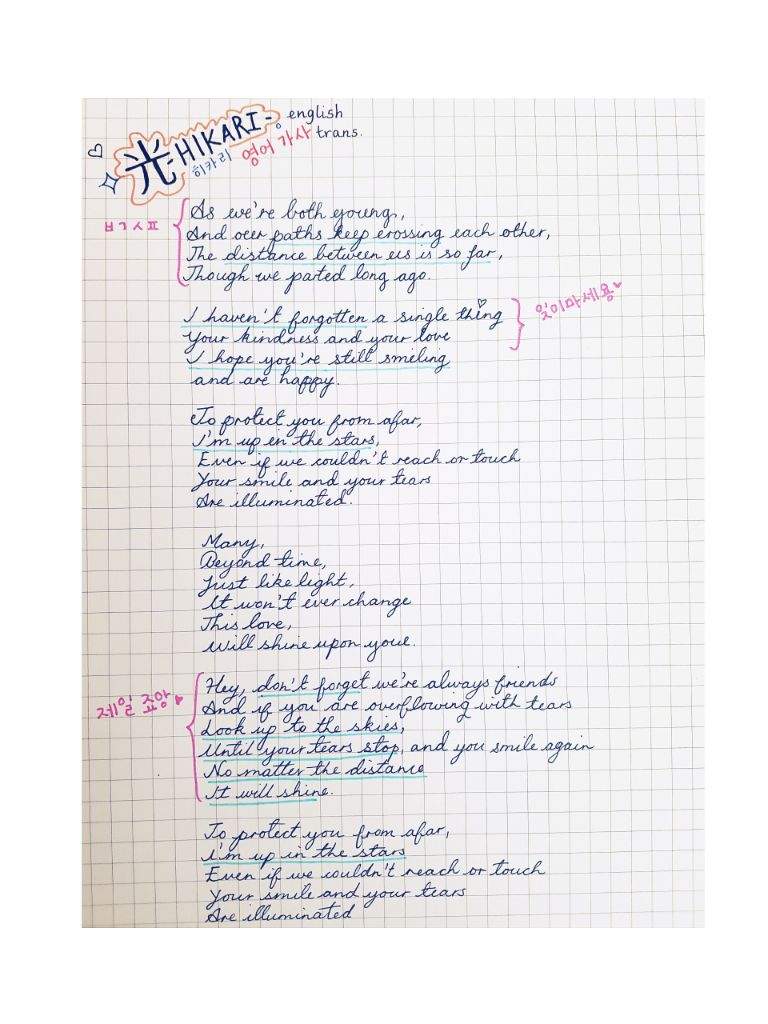 光 -HIKARI- english
히카리 영어 가사 trans.
ㅂㄱㅅㅍ
As we're both young,
And our paths keep crossing each other,
The distance between us is so far,
Though we parted long ago.
I haven't forgotten a single thing
잊이마세용
Your kindness and your love
I hope you're still smiling
and are happy.
To protect you from afar,
I'm up in the stars,
Even if we couldn't reach or touch
Your smile and your tears
Are illuminated.
Many,
Beyond time,
Just like light,
It won't ever change
This love,
Will shine upon you.
Hey, don't forget we're always friends
제일 죠앙
And if you are overflowing with tears
Look up to the skies,
Until your tears stop, and you smile again
No matter the distance
It will shine.
To protect you from afar,
I'm up in the stars
Even if we couldn't reach or touch
Your smile and your tears
Are illuminated